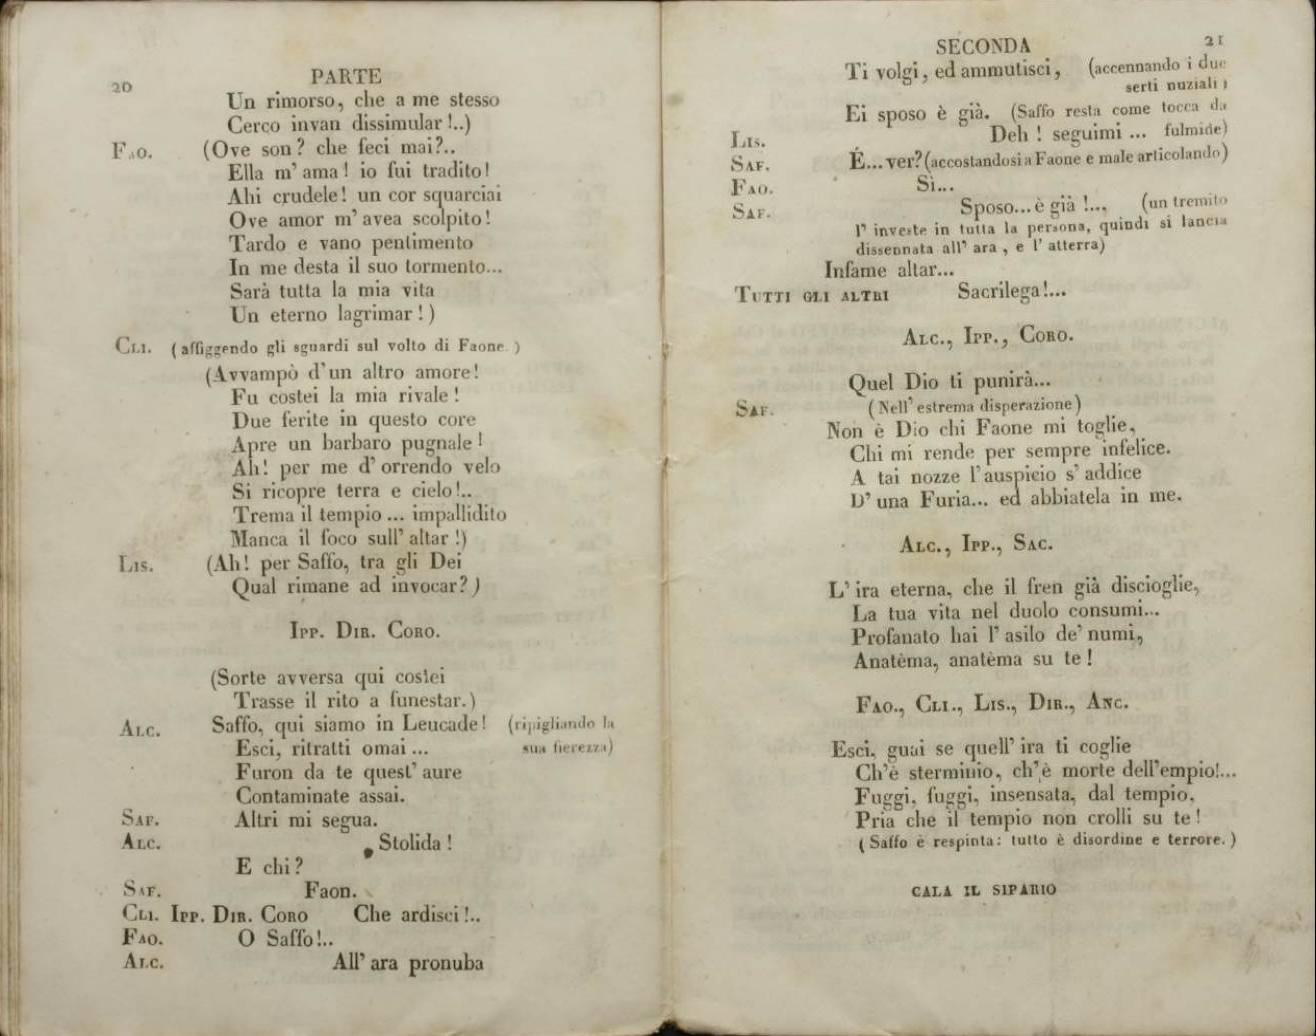 20
PARTE
Un rimorso, che a me stesso
Cerco invan dissimular!..)
FAO. (Ove son? che feci mai?..
Ella m'ama! io fui tradito!
Ahi crudele! un cor squarciai
Ove amor m'avea scolpito!
Tardo e vano pentimento
In me desta il suo tormento...
Sarà tutta la mia vita
Un eterno lagrimar!)
CLI. (affiggendo gli sguardi sul volto di Faone.)
(Avvampò d'un altro amore!
Fu costei la mia rivale!
Due ferite in questo core
Apre un barbaro pugnale!
Ah! per me d'orrendo velo
Si ricopre terra e cielo!..
Trema il tempio... impallidito
Manca il foco sull'altar!)
LIS. (Ah! per Saffo, tra gli Dei
Qual rimane ad invocar?)
IPP. DIR. CORO.
(Sorte avversa qui costei
Trasse il rito a funestar.)
ALC. Saffo, qui siamo in Leucade! (ripigliando la
Esci, ritratti omai... sua fierezza)
Furon da te quest'aure
Contaminate assai.
SAF. Altri mi segua.
ALC. Stolida!
E chi?
SAF. Faon.
CLI. IPP. DIR. CORO Che ardisci!..
FAO. O Saffo!..
ALC. All'ara pronuba
SECONDA 21
Ti volgi, ed ammutisci, (accennando i due
serti nuziali)
Ei sposo è già. (Saffo resta come tocca da
LIS. Deh! seguimi... fulmine)
SAF. É...ver? (accostandosi a Faone e male articolando)
FAO. Sì...
SAF. Sposo...è già!... (un tremito
l'investe in tutta la persona, quindi si lancia
dissennata all'ara, e l'atterra)
Infame altar...
TUTTI GLI ALTRI Sacrilega!...
ALC., IPP., CORO.
Quel Dio ti punirà...
SAF. (Nell'estrema disperazione)
Non è Dio chi Faone mi toglie,
Chi mi rende per sempre infelice.
A tai nozze l'auspicio s'addice
D'una Furia... ed abbiatela in me.
ALC., IPP., SAC.
L'ira eterna, che il fren già discioglie,
La tua vita nel duolo consumi...
Profanato hai l'asilo de'numi,
Anatèma, anatèma su te!
FAO., CLI., LIS., DIR., ANC.
Esci, guai se quell'ira ti coglie
Ch'è sterminio, ch'è morte dell'empio!...
Fuggi, fuggi, insensata, dal tempio,
Pria che il tempio non crolli su te!
(Saffo è respinta: tutto è disordine e terrore.)
CALA IL SIPARIO